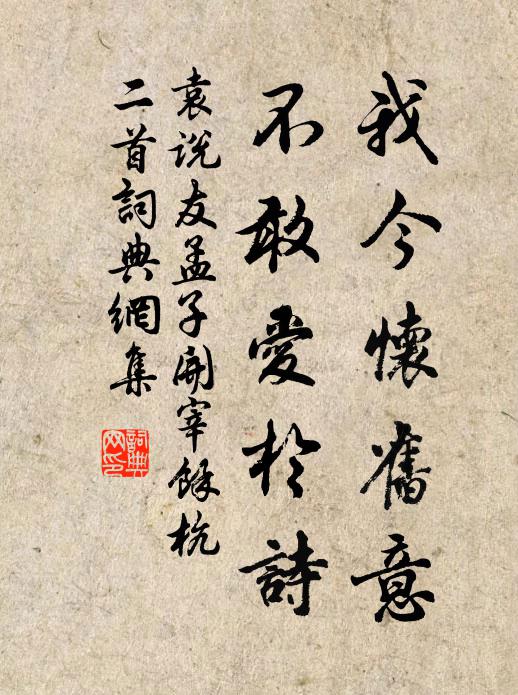 我今懷舊意
不敢愛於詩
袁说友孟子開宰餘杭
二首詞典網集
詞典
网印